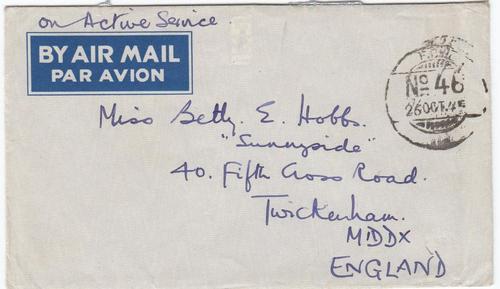 on Active Service.
BY AIR MAIL
PAR AVION
No 46
26 OCT. 45
Miss Betty. E. Hobbs.
"Sunnyside"
40. Fifth Cross Road.
Twickenham.
MDDX
ENGLAND